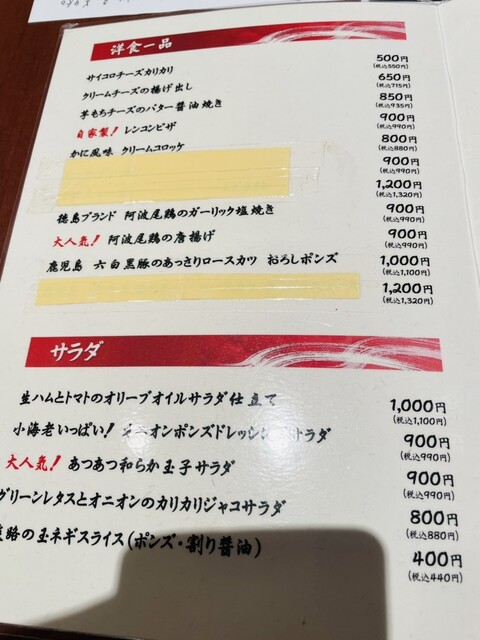 洋食一品
サイコロチーズカリカリ 500円
(税込550円)
クリームチーズの揚げ出し 650円
(税込715円)
芋もちチーズのバター醤油焼き 850円
(税込935円)
自家製！ レンコンピザ 900円
(税込990円)
かに風味 クリームコロッケ 800円
(税込880円)
900円
(税込990円)
1,200円
(税込1,320円)
徳島ブランド 阿波尾鶏のガーリック塩焼き 900円
(税込990円)
大人気！ 阿波尾鶏の唐揚げ 900円
(税込990円)
鹿児島 六白黒豚のあっさりロースカツ おろしポンズ 1,000円
(税込1,100円)
1,200円
(税込1,320円)
サラダ
生ハムとトマトのオリーブオイルサラダ仕立て 1,000円
(税込1,100円)
小海老いっぱい！ オニオンポンズドレッシングサラダ 900円
(税込990円)
大人気！ あつあつ和らか玉子サラダ 900円
(税込990円)
グリーンレタスとオニオンのカリカリジャコサラダ 800円
(税込880円)
路の玉ネギスライス(ポンズ・割り醤油) 400円
(税込440円)